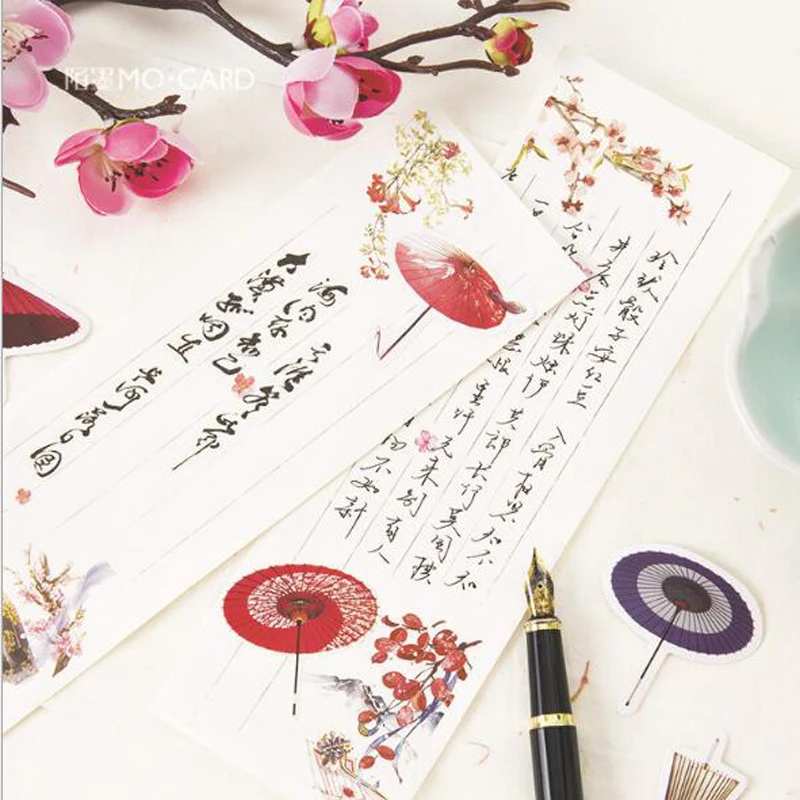 陌墨MO·CARD
玲珑骰子安红豆 入骨相思知不知
井底点灯深烛伊 共郎长行莫围棋
合欢 恨 里许元来别有人
不如新
海内存知己 天涯若比邻
大漠孤烟直 长河落日圆